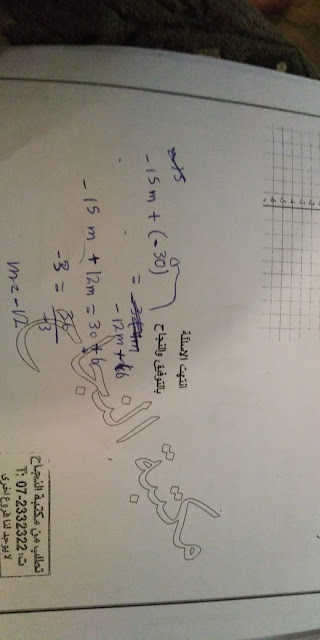 -15m + (-30)
= -12m + 6
-15m + 12m = 30 + 6
-3 = 36
-3
m = -12
انتهت الاسئلة
بالتوفيق والنجاح
مكتبة النجاح
تطلب من مكتبة النجاح
ت: 2332322-07 :T
لا يوجد لنا فروع اخرى